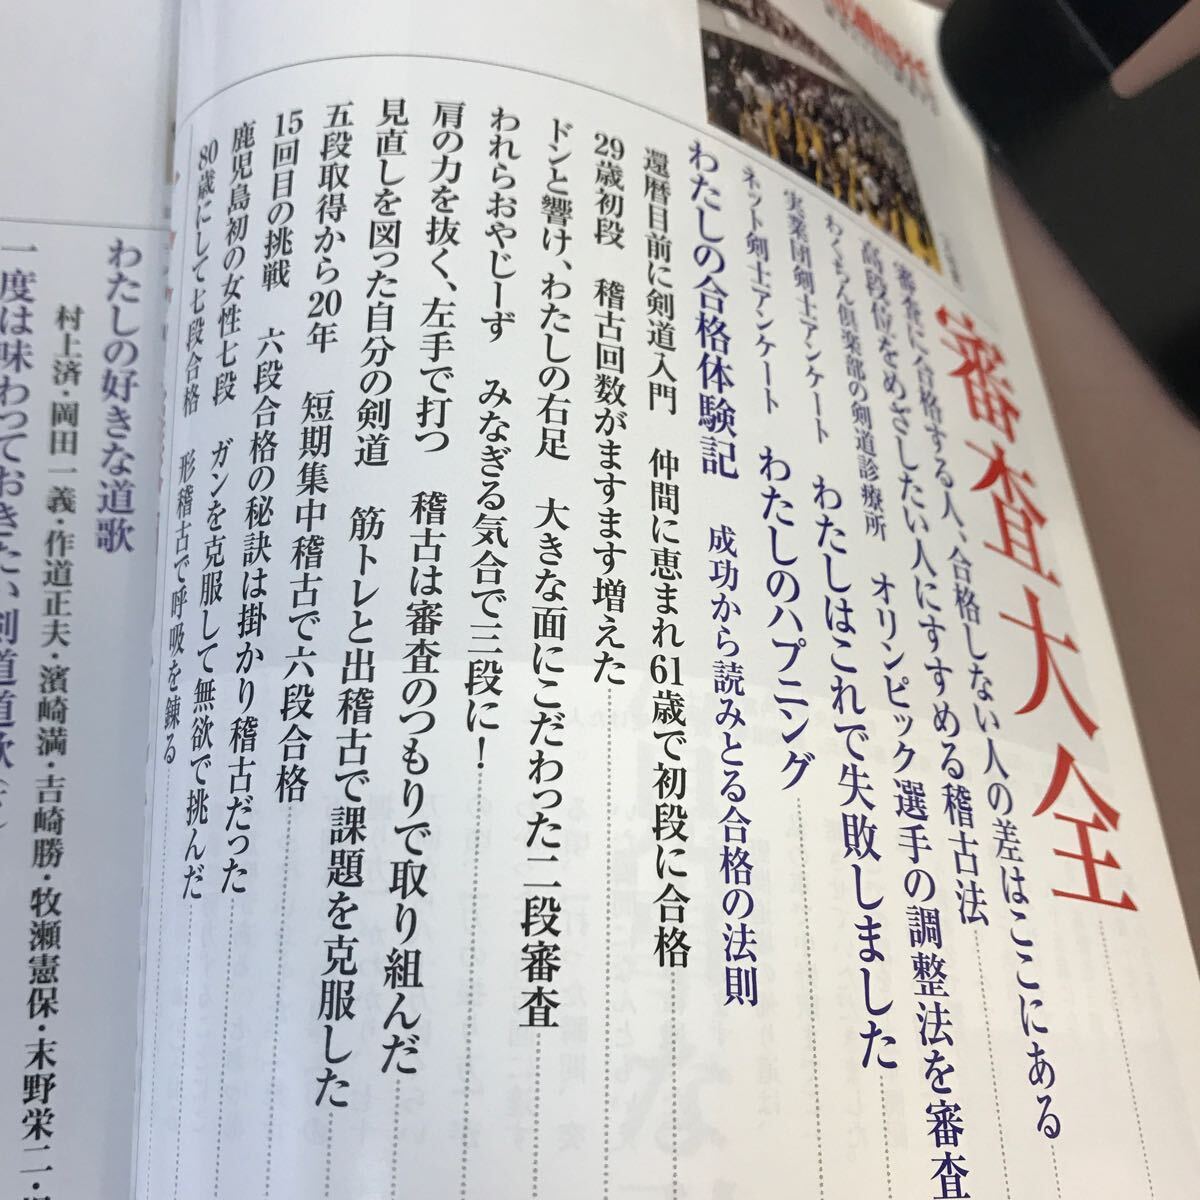 審査大全
審査に合格する人、合格しない人の差はここにある
高段位をめざしたい人にすすめる稽古法
わくちん倶楽部の剣道診療所 オリンピック選手の調整法を審査
実業団剣士アンケート わたしはこれで失敗しました
ネット剣士アンケート わたしのハプニング
わたしの合格体験記 成功から読みとる合格の法則
還暦目前に剣道入門 仲間に恵まれ61歳で初段に合格
29歳初段 稽古回数がますます増えた
ドンと響け、わたしの右足 大きな面にこだわった二段審査
われらおやじーず みなぎる気合で三段に！
肩の力を抜く、左手で打つ 稽古は審査のつもりで取り組んだ
見直しを図った自分の剣道 筋トレと出稽古で課題を克服した
五段取得から20年 短期集中稽古で六段合格
15回目の挑戦 六段合格の秘訣は掛かり稽古だった
鹿児島初の女性七段 ガンを克服して無欲で挑んだ
80歳にして七段合格 形稽古で呼吸を錬る
わたしの好きな道歌
村上済・岡田一義・作道正夫・濱崎満・吉崎勝・牧瀬憲保・末野栄二・
一度は味わっておきたい剣道道歌